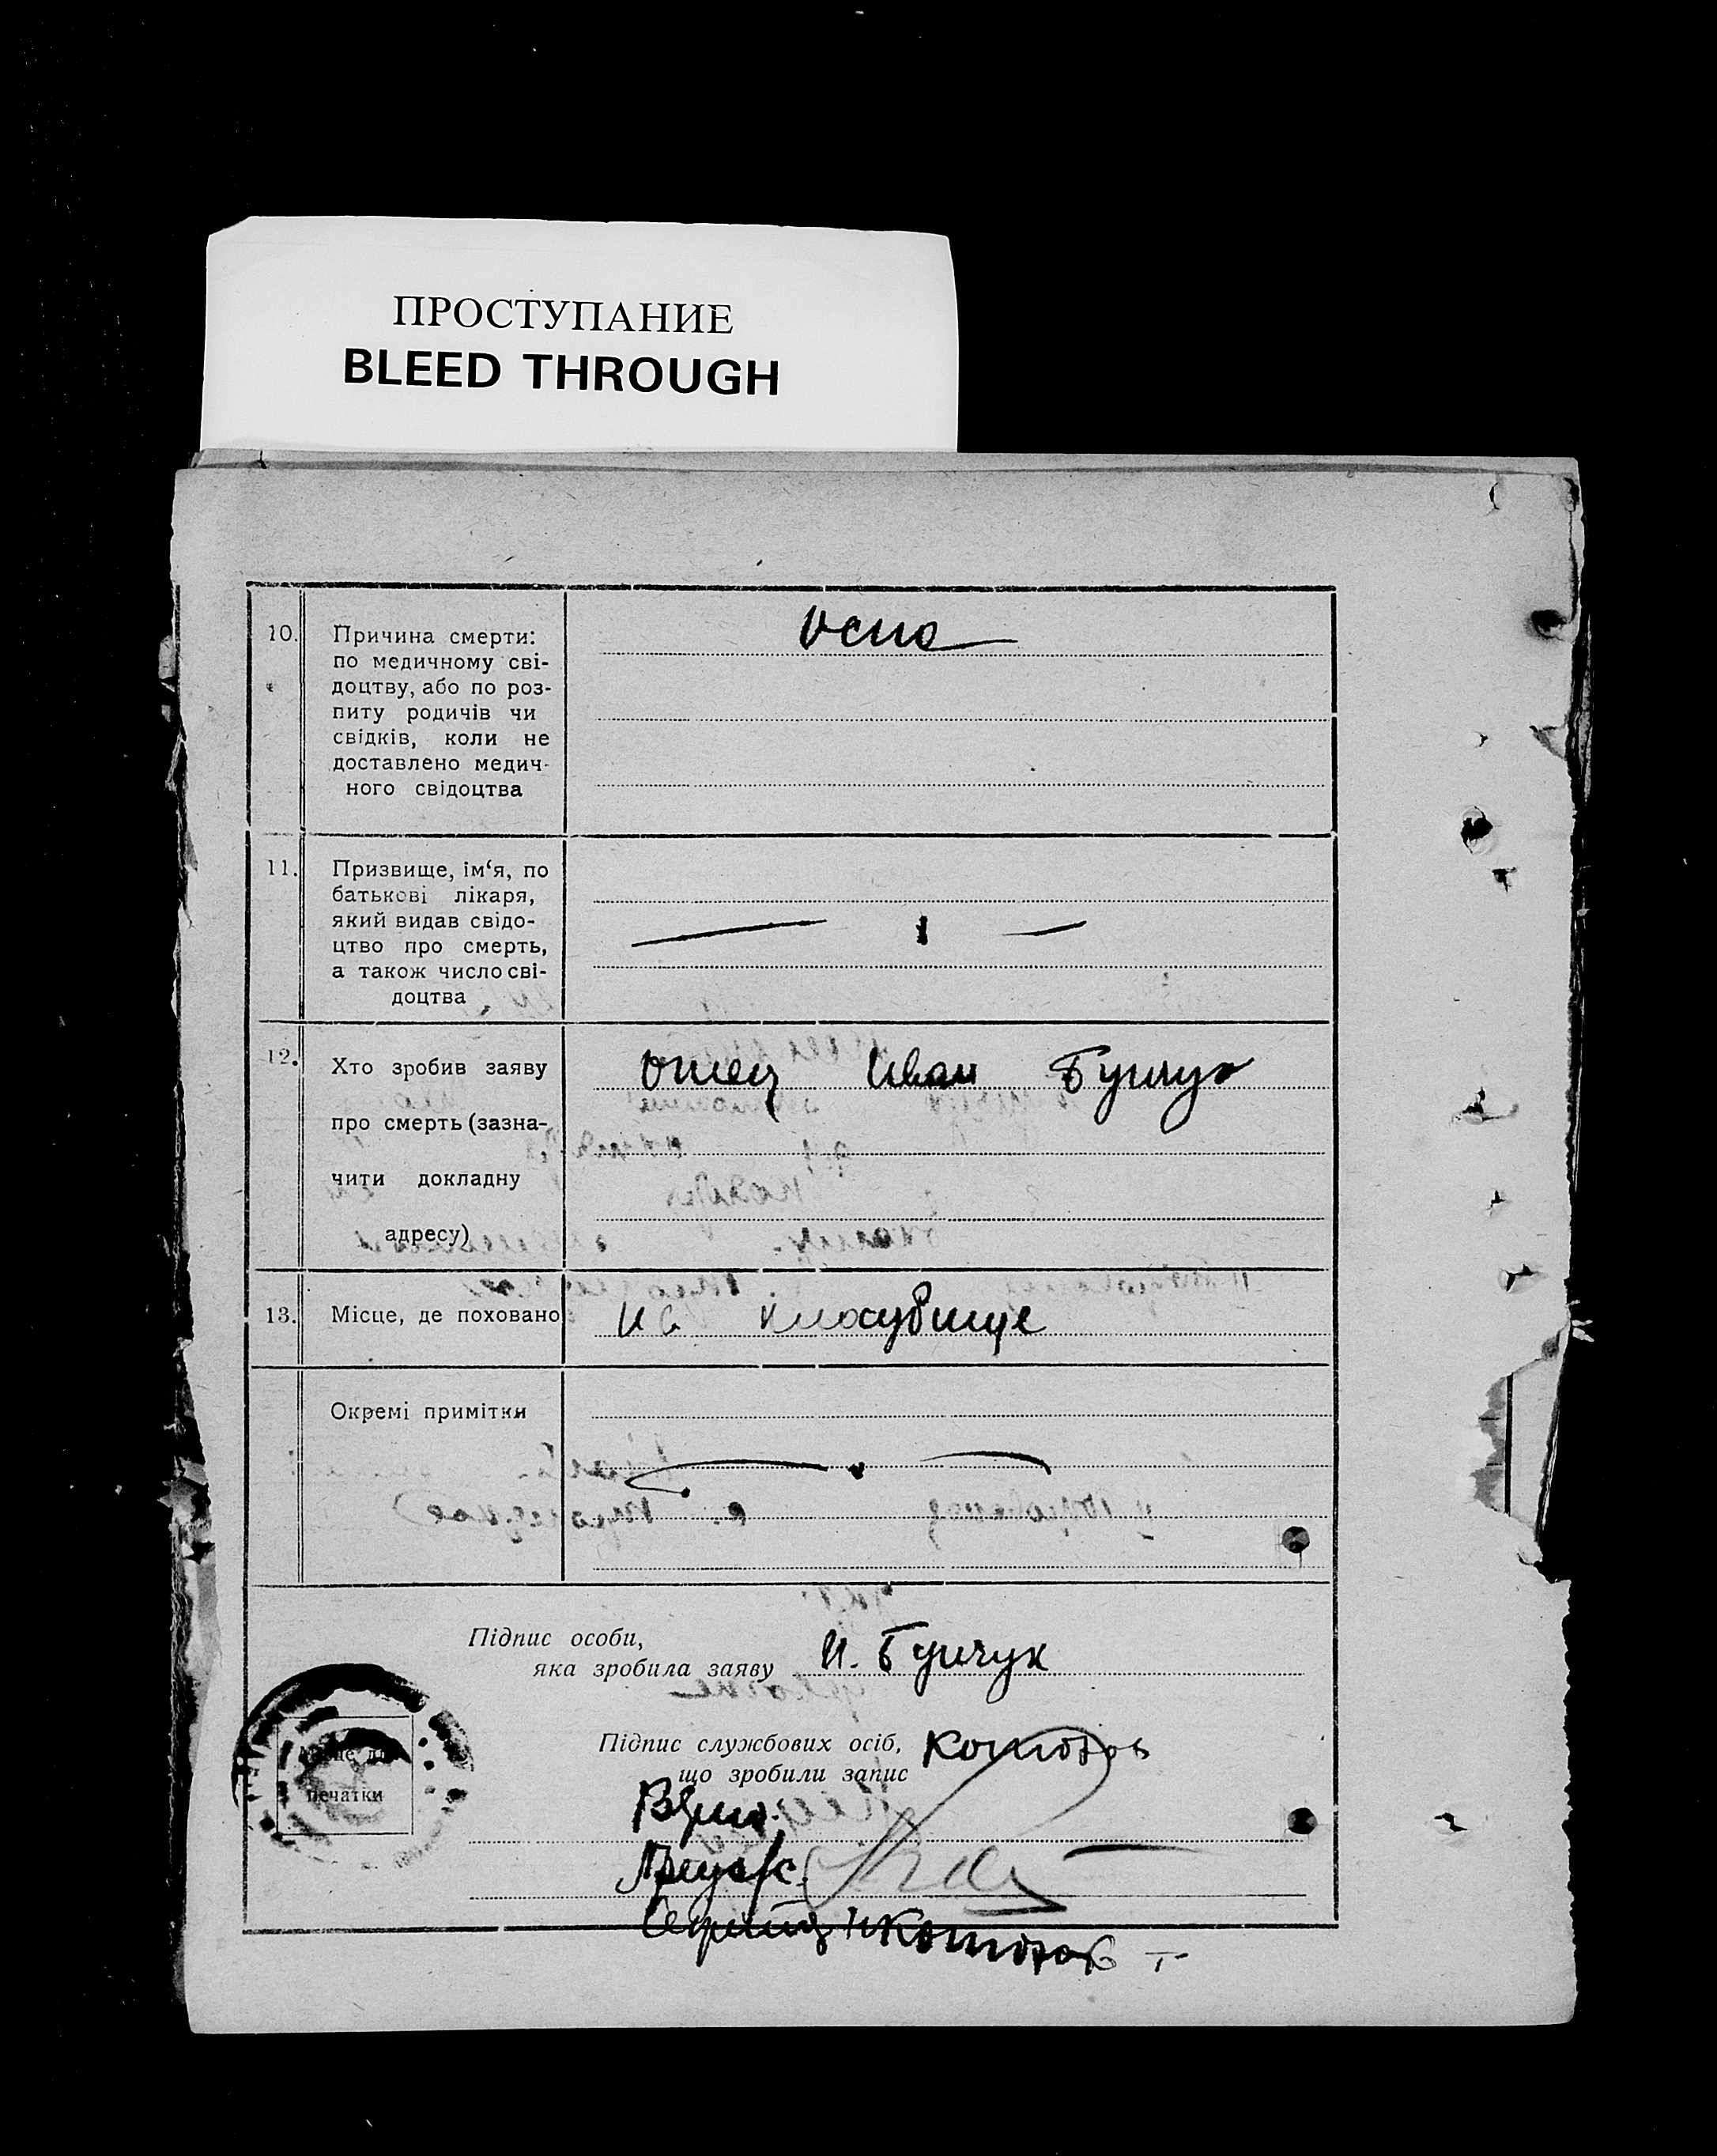 ПРОСТУПАНИЕ
BLEED THROUGH
10. Причина смерти:
по медичному сві-
доцтву, або по роз-
питу родичів чи
свідків, коли не
доставлено медич-
ного свідоцтва
оспа
11. Призвище, ім‘я, по
батькові лікаря,
який видав свідо-
цтво про смерть,
а також число сві-
доцтва
12. Хто зробив заяву
про смерть (зазна-
чити докладну
адресу)
отец Иван Бунчук
13. Місце, де поховано
на кладубище
Окремі примітки
Підпис особи,
яка зробила заяву И. Бунчук
Підпис службових осіб,
що зробили запис
печатки